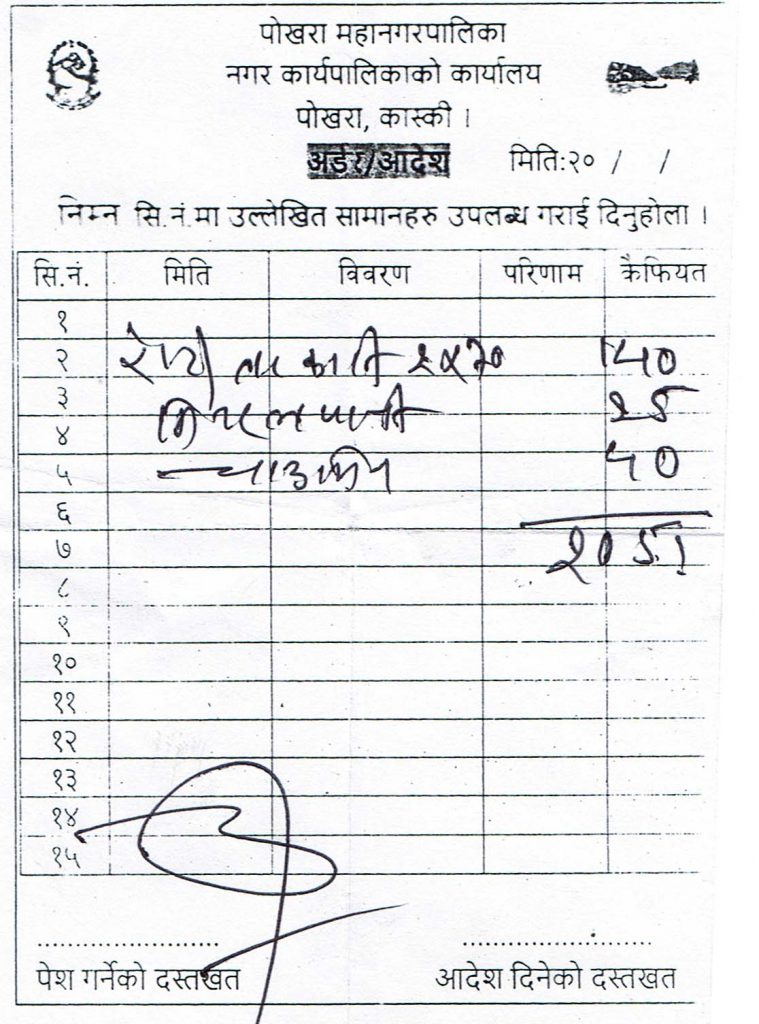 पोखरा महानगरपालिका
नगर कार्यपालिकाको कार्यालय
पोखरा, कास्की ।
अर्डर/आदेश
मिति:२० / /
निम्न सि.नं.मा उल्लेखित सामानहरु उपलब्ध गराई दिनुहोला ।
सि.नं. मिति विवरण परिणाम कैफियत
१
२ रोटी तरकारी २x७० १४०
३
४ मिनरल पानी २५
५ ४०
६
७ २०५।
८
९
१०
११
१२
१३
१४
१५
पेश गर्नेको दस्तखत आदेश दिनेको दस्तखत